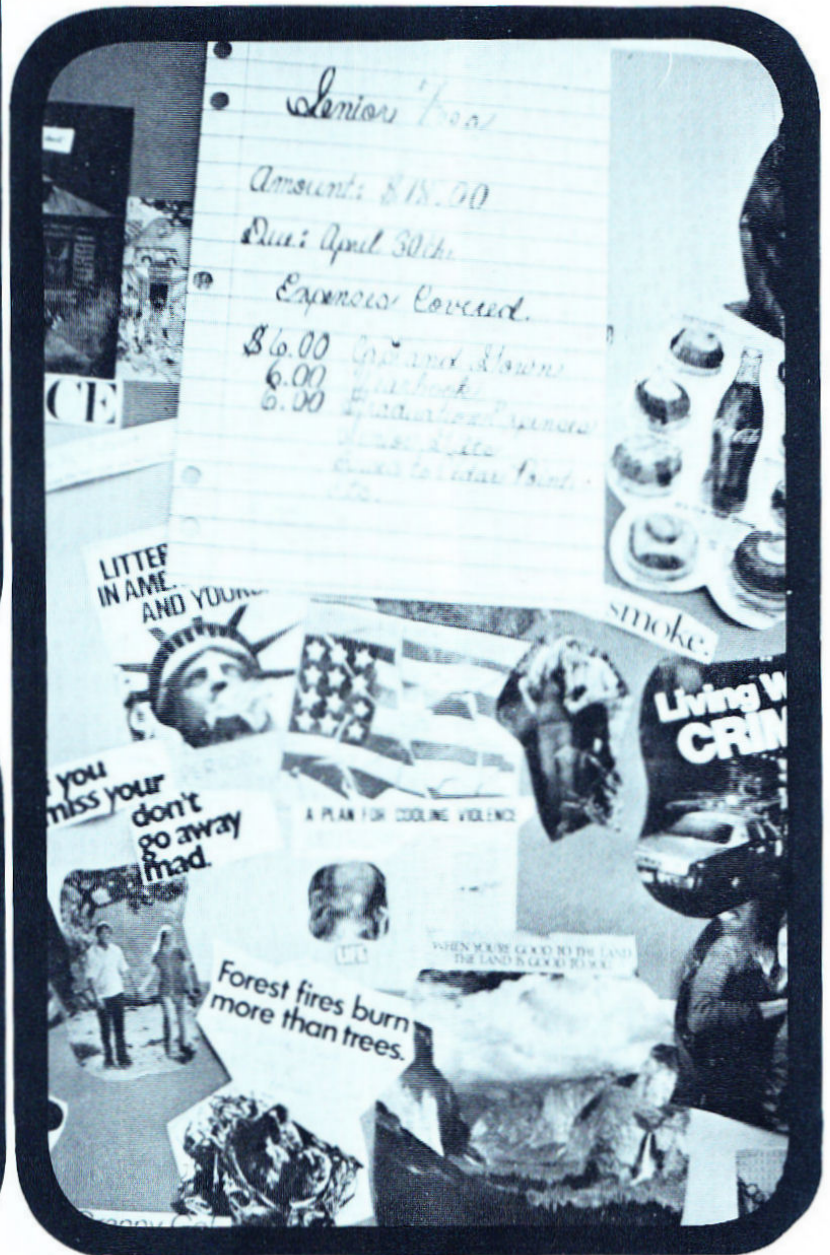 Senior
Amount: $18.00
Due: April 30th.
Expenses Covered.
$6.00 Cap and Gowns
6.00 Yearbooks
6.00 Graduation Expenses
Senior
to Cedar Point
etc.
CE
Coca-Cola
LITTER
IN AME
AND YOURS
smoke.
Living W
CRIM
you
miss your
don't
go away
mad.
PERIOD.
A PLAN FOR COOLING VIOLENCE
LIFE
WHEN YOU'RE GOOD TO THE LAND
THE LAND IS GOOD TO YOU
Forest fires burn
more than trees.